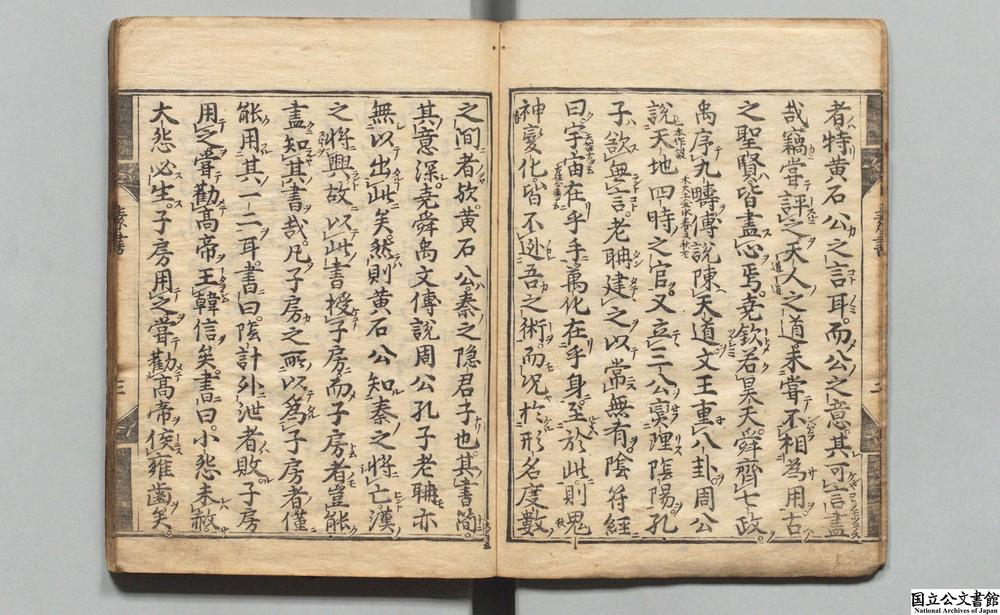 者特黄石公之言耳。而公之意其可言盡
哉竊嘗評之天人之道未嘗不相為用古
之聖賢皆盡心焉。尭欽若昊天。舜齊七政。
禹序九疇傳說陳天道文王重八卦。周公
說天地四時之官。又立三公爕理陰陽。孔
子欲無言。老聃建之以常無有。陰符經
曰宇宙在乎手萬化在乎身。至於此則鬼
神變化皆不逃吾之術而况於形名度數
之間者欤。黄石公秦之隐君子也。其書簡。
其意深。尭舜禹文傳說周公孔子老聃亦
無以出此矣。然則黄石公知秦之將亡漢
之將興故以此書授子房而子房者豈能
盡知其書哉。凡子房之所以為子房者僅
能用其一二耳。書曰。陰計外泄者敗。子房
用之嘗勸高帝王韓信矣。書曰。小怨未赦
大怨必生。子房用之嘗勸高帝侯雍齒矣。
素書
三
国立公文書館
National Archives of Japan